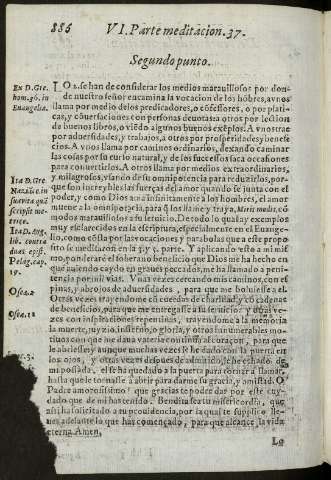 886 VI. Parte meditacion. 37.
Segundo punto.
Ex D. Gre.
hom. 36. in
Euangelia.
LO 2. se han de considerar los medios marauillosos por don-
de nuestro señor encamina la vocacion de los hõbres, a vnos
llama por medio de los predicadores, o cõfessores, o por platic-
cas, y cõuersaciones con personas deuotas a otros por lection
de buenos libros, o viẽdo algunos buenos exẽplos. A vnos trae
por aduersidades, y trabajos, a otros por prosperidades y benefi-
cios. A vnos llama por caminos ordinarios, dexando caminar
las cosas por su curso natural, y de los successos saca occasiones
para conuertirlos. A otros llama por medios extraordinarios,
y milagrosos, vsando de su omnipotencia para reduzirlos, por-
que son increybles las fuerças del amor quando se junta con el
poder, y como Dios ama infinitamente a los hombres, el amor
mueue a la omnipotencia, para q̃ los llame y trayga, Miris modis, cõ
modos marauillosos a su seruicio. De todo lo qual ay exemplos
muy esclarecidos en la escriptura, especialmente en el Euange-
lio, como cõsta por las vocaciones y parabolas que a este propo
sito se meditaron en la 3. y 5. parte. Y aplicando esto a mi mis
mo, ponderare el soberano beneficio que Dios me ha hecho en
que auiendo caydo en graues peccados, me ha llamado a peni-
tencia por mil vias. Vnas vezes cercando mis caminos, con es-
pinas, y abrojos de aduersidades, para que me boluiesse a el.
Otras vezes trayendome cõ cuerdas de charidad, y cõ cadenas
de beneficios, para que me entregasse a su seruicio y otras ve-
zes con inspiraciones repentinas, trayendome a la memoria
la muerte, juyzio, infierno, o gloria, y otros innumerables mo-
tiuos con que me daua bateria continua al coraçon, para que
le abriesse, y aunque muchas vezes le he dado con la puerta en
los ojos, y otras vezes despues de admitido, le he echado de
mi possada, el se ha quedado a la puerta para tornar a llamar,
hasta que le tornasse a abrir para darme su gracia, y amistad. O
Padre amorosissimo! que gracias te podre dar por este cuy-
dado que de mi has tenido. Bendita sea tu misericordia, que
assi ha solicitado a tu prouidencia, por la qual te supplico lle-
ues adelante lo que has començado, para que alcance la vida
eterna. Amen.
Ita D. Gre.
Ita D. Aug.
lib. contra
duas epist.
Pelag. cap.
19.
Osea. 2
Osea. 11
Lo